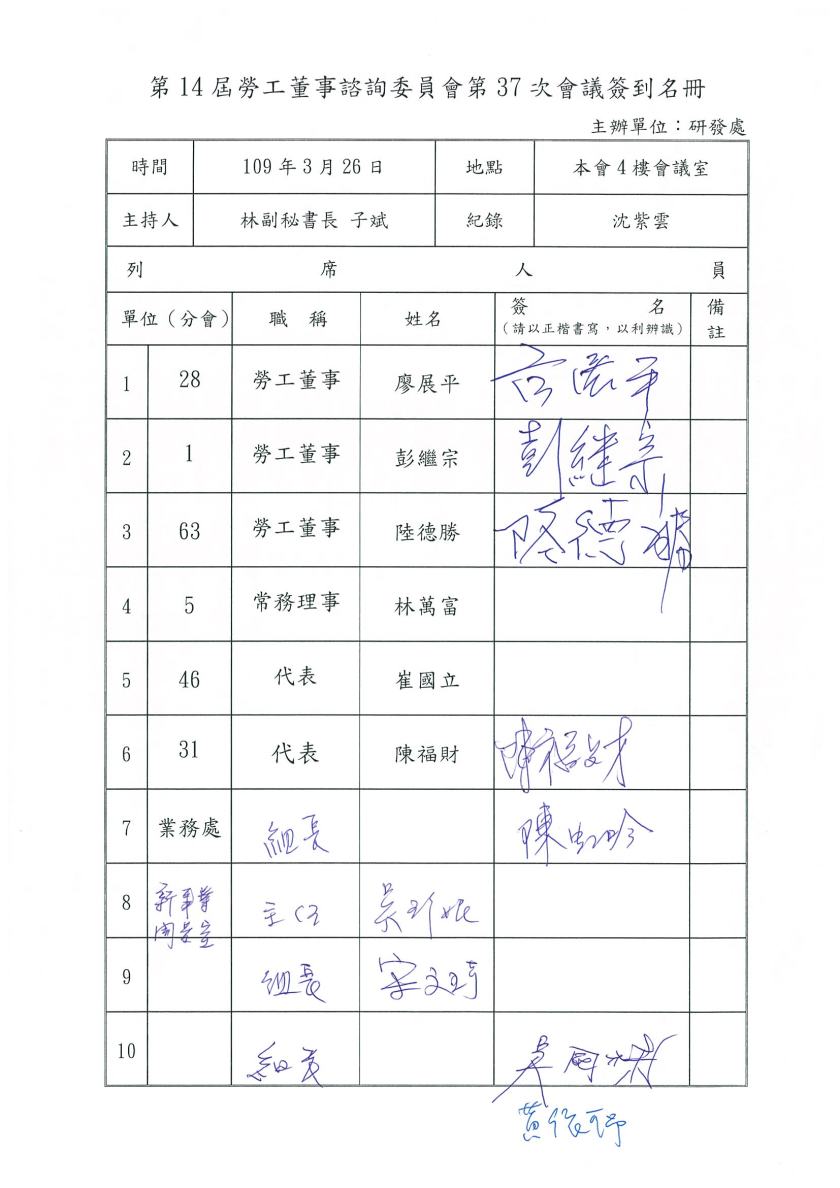 第14屆勞工董事諮詢委員會第37次會議簽到名冊
主辦單位：研發處
時間 109年3月26日 地點 本會4樓會議室
主持人 林副秘書長 子斌 紀錄 沈紫雲
列 席 人 員
單位（分會） 職 稱 姓名 簽 名 備註
（請以正楷書寫，以利辨識）
1 28 勞工董事 廖展平
2 1 勞工董事 彭繼宗 彭繼宗
3 63 勞工董事 陸德勝 陸德勝
4 5 常務理事 林萬富
5 46 代表 崔國立
6 31 代表 陳福財 陳福財
7 業務處 組長 陳虹吟
8 新事業 主任
9 組長 宋文琦
10 組長